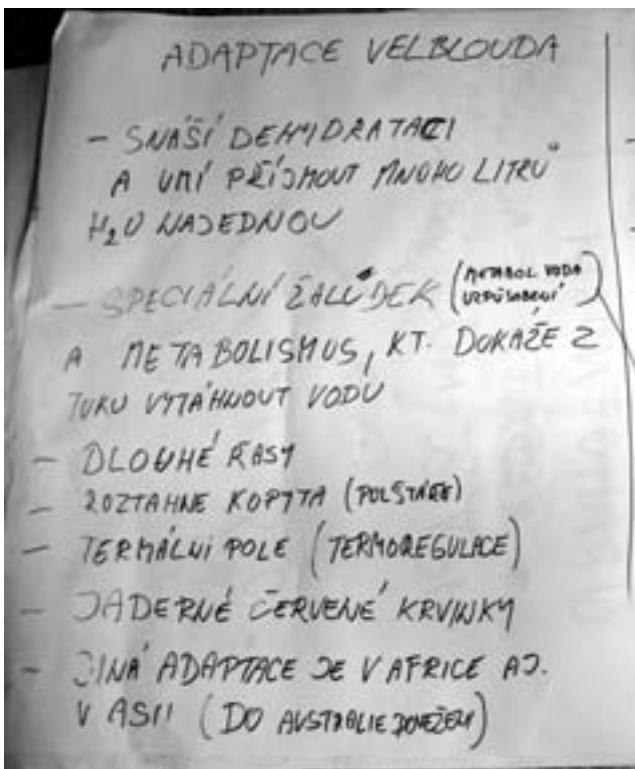 ADAPTACE VELBLOUDA
- SNÁŠÍ DEHYDRATACI
A UMÍ PŘIJMOUT MNOHO LITRŮ
H₂O NAJEDNOU
- SPECIÁLNÍ ŽALÚDEK (METABOL VODA
UZPŮSOBENÍ)
A METABOLISMUS, KT. DOKÁŽE Z
TUKU VYTÁHNOUT VODU
- DLOUHÉ ŘASY
- ROZTAHNE KOPYTA (POLŠTÁŘE)
- TERMÁLNÍ POLE (TERMOREGULACE)
- JADERNÉ ČERVENÉ KRVINKY
- JINÁ ADAPTACE JE V AFRICE A J.
V ASII (DO AUSTRÁLIE DOVEZENI)